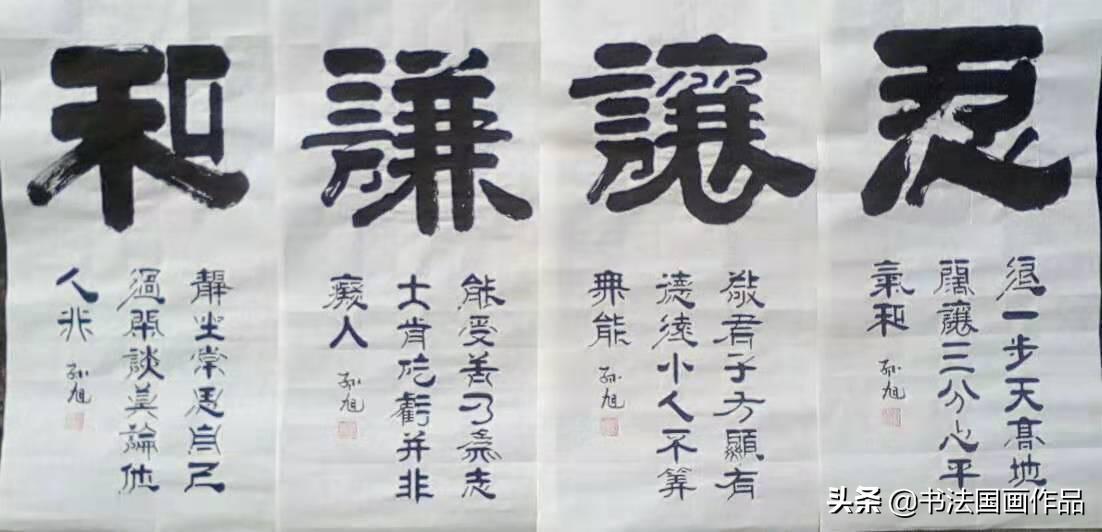 忍
退一步天高地
闊讓三分心平
氣和
孙旭
讓
敬君子方顯有
德小人不算
無能
孙旭
謙
能受苦乃為志
士肯吃虧并非
癡人
孙旭
和
靜坐常思自己
過閑談莫論他
人非
孙旭
头条 @书法国画作品